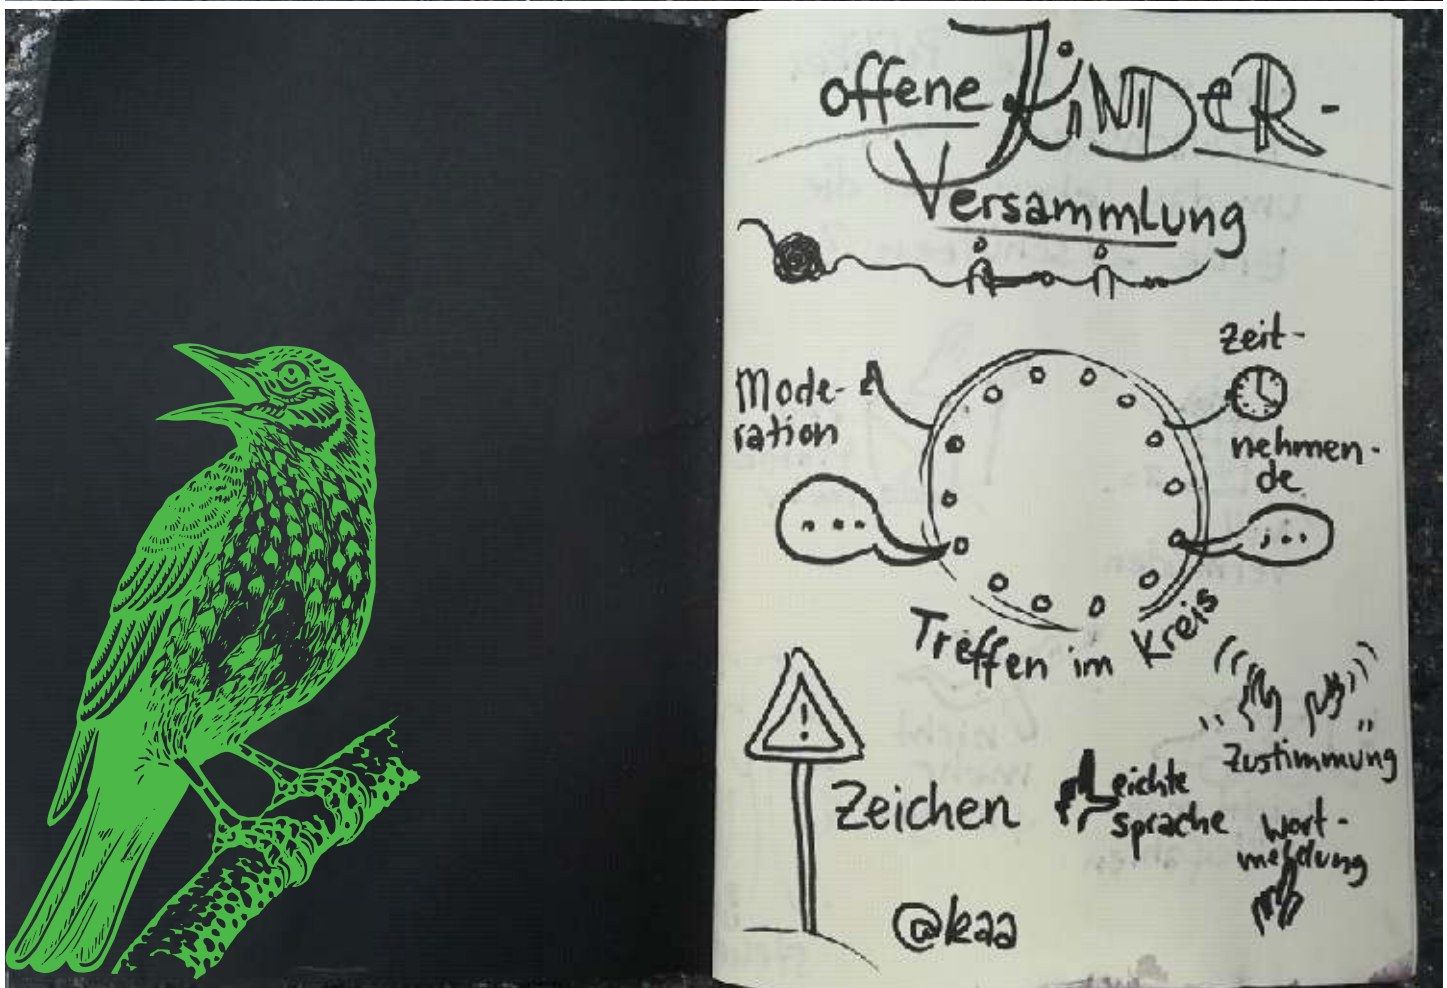 offene KiNDER-
Versammlung
Mode-
ration
Zeit-
nehmen-
de
...
...
Treffen im Kreis
!
Zeichen
Zustimmung
Leichte
sprache
Wort-
meldung
@kaa